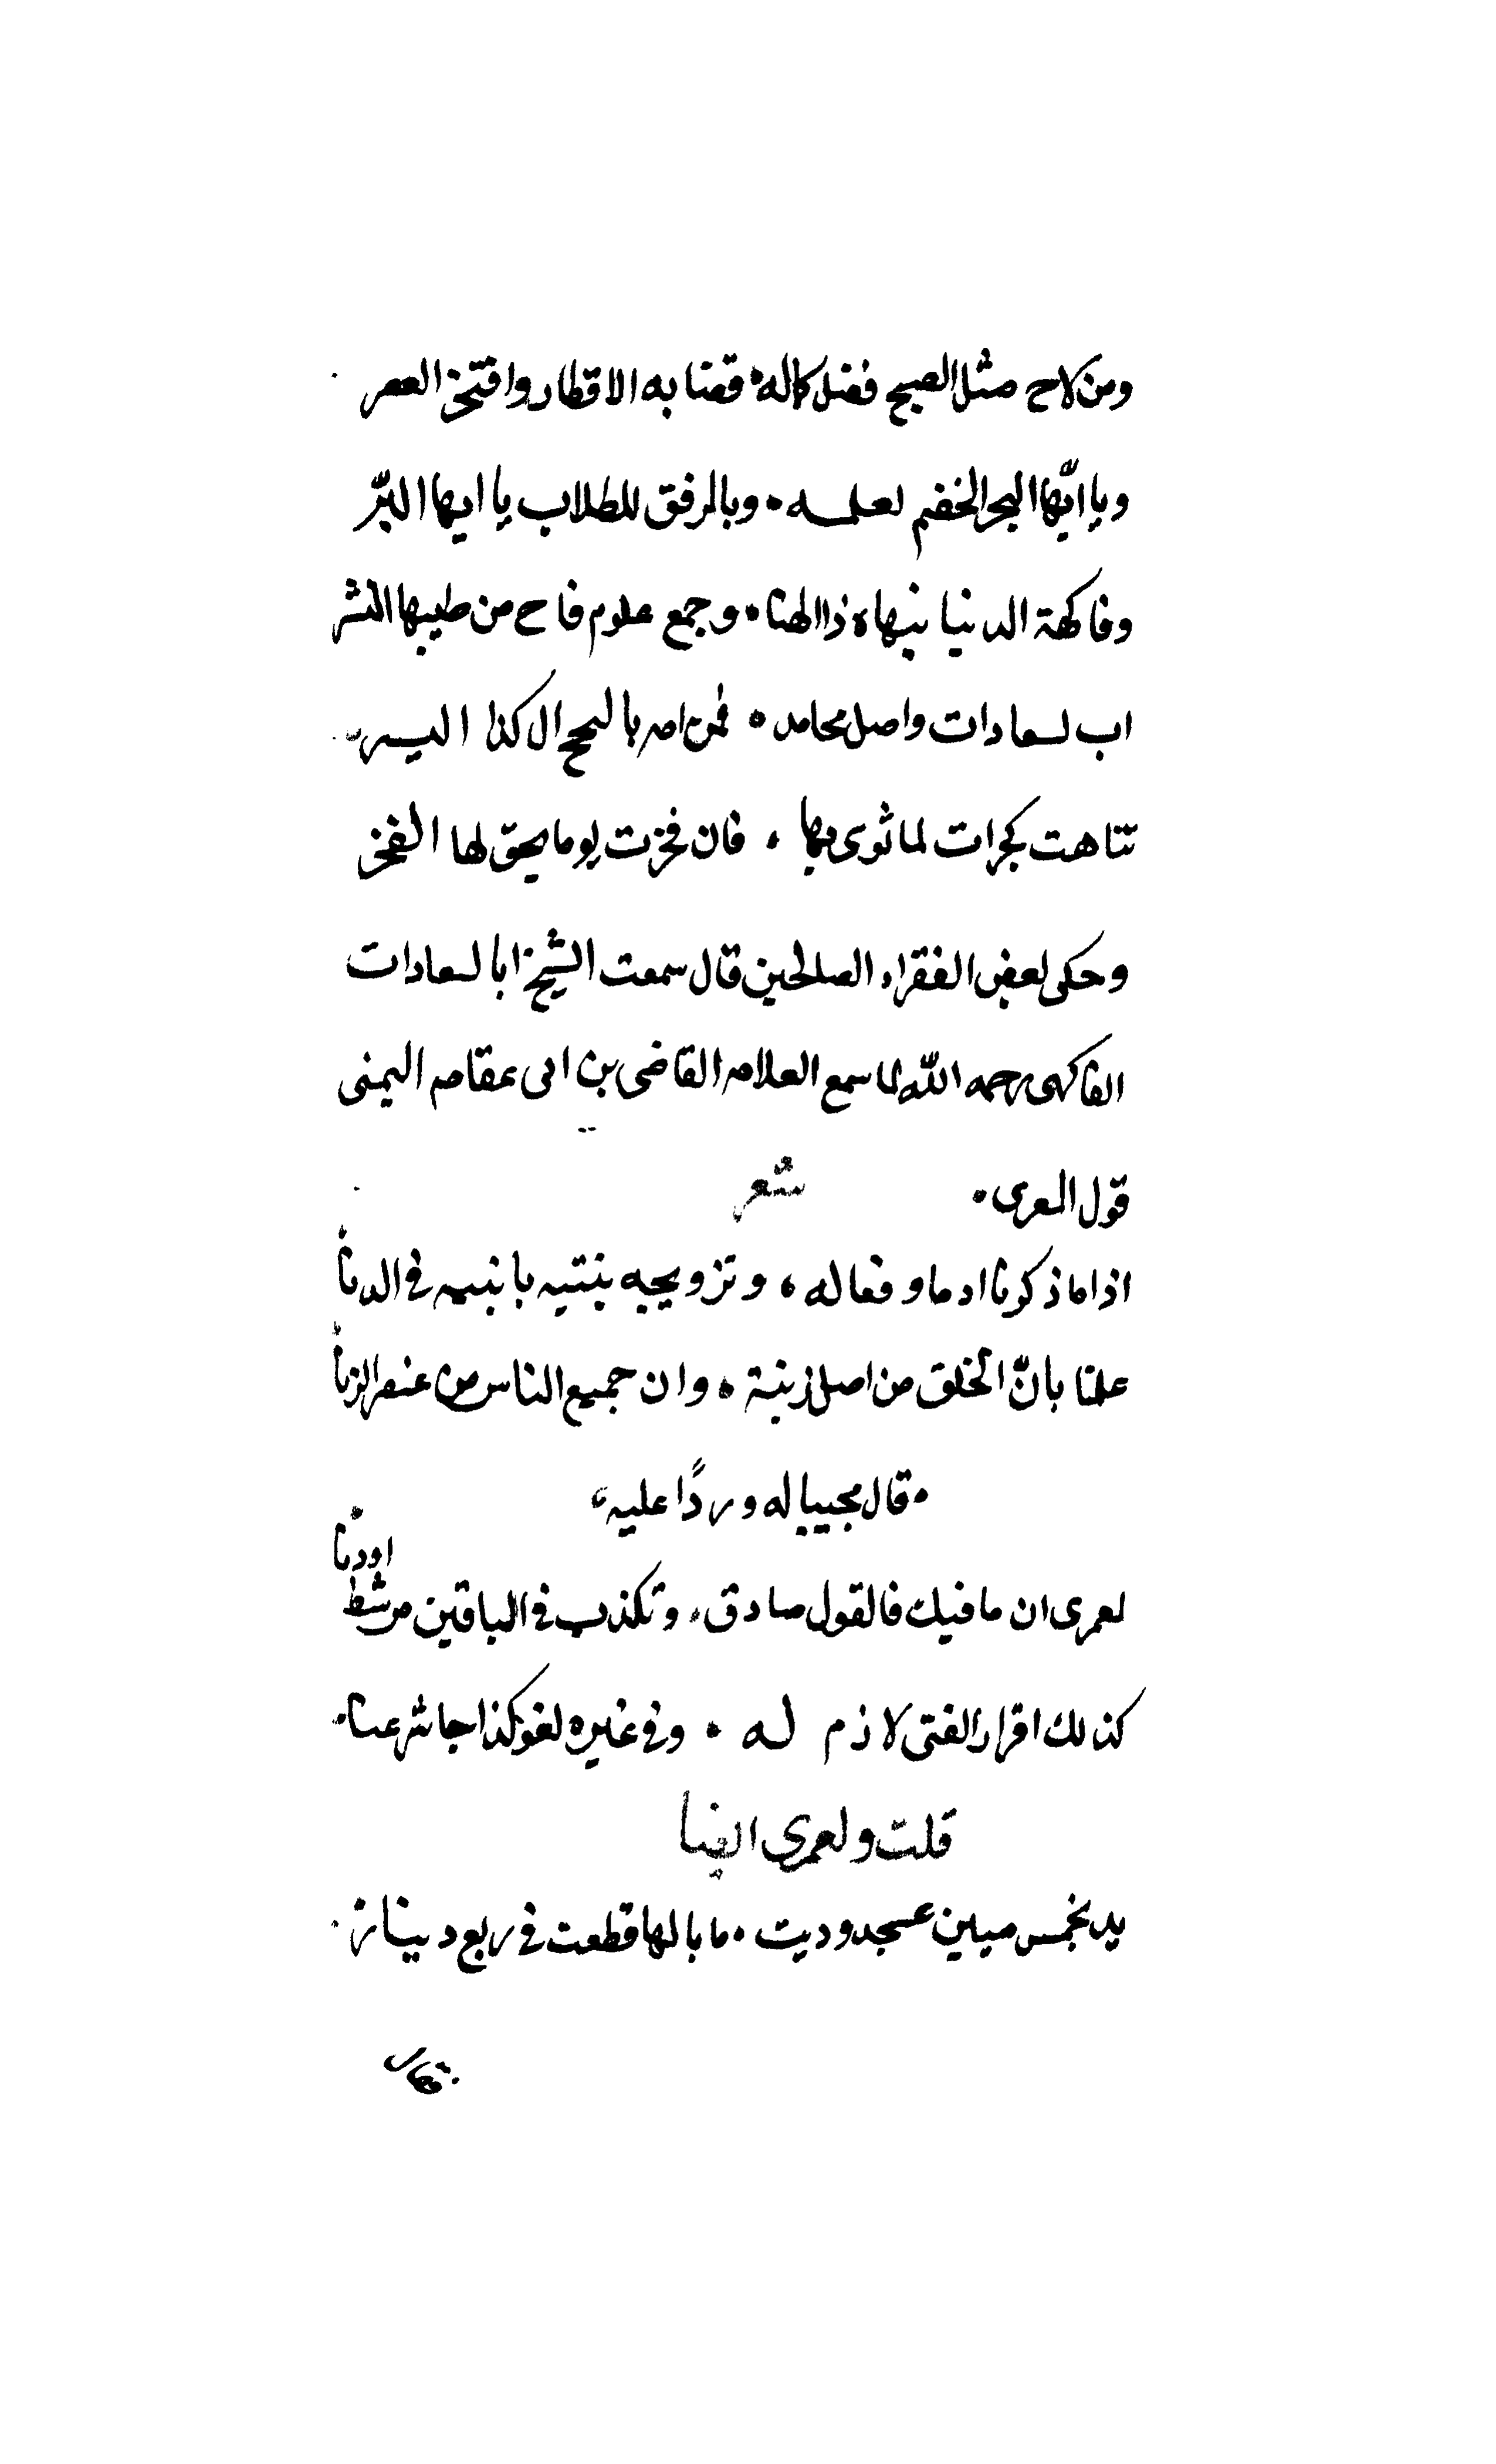 ومن لاح مثل الصبح فضل كماله ٥ فضا به الاقطار وافتخر العصر
ويا ايّها البحر الخضم لعلمه ٠ وبالرفق للطلاب يا ايها البرّ
وفاكهة الدنيا نبهاه ذا الهنا ٠ وجمع علوم فاح من طيبها النشر
اب لسعادات واصل محامد ٥ فمن امه بالنجح ال كذا اليسر
تتاهت كجرات لما ثوى بها ، فان فخرت يوما يحق لها الفخر
وحكى لعض الفقراء الصالحين قال سمعت الشيخ ابا لسعادات
الفاكهى رحمه اللّه لما سمع العلامه القاضى بن ابى عقامه اليمنى
قول المعرى ٠ شعر
اذا ما ذكرنا ادما وفعاله ، وتزويجه بنتيه بابنيه فى الدنا
علمنا بانّ الخلق من اصل زينة ، وان جميع الناس من عنصر الزنا
٠ قال مجيبا له وردًا عليه ،
لعمرى ان ما فيك فالقول صادق ، وتكذب فى الباقين من شط اودنا
كذلك اقرار الفتى لازم له ٠ وفى غيره لغو كذا جا شرعنا ٠
قلت ولعمرى ايضا
يد بخمس ميين عسجد وديت ٠ ما بالها قطعت فى ربع دينار ٠